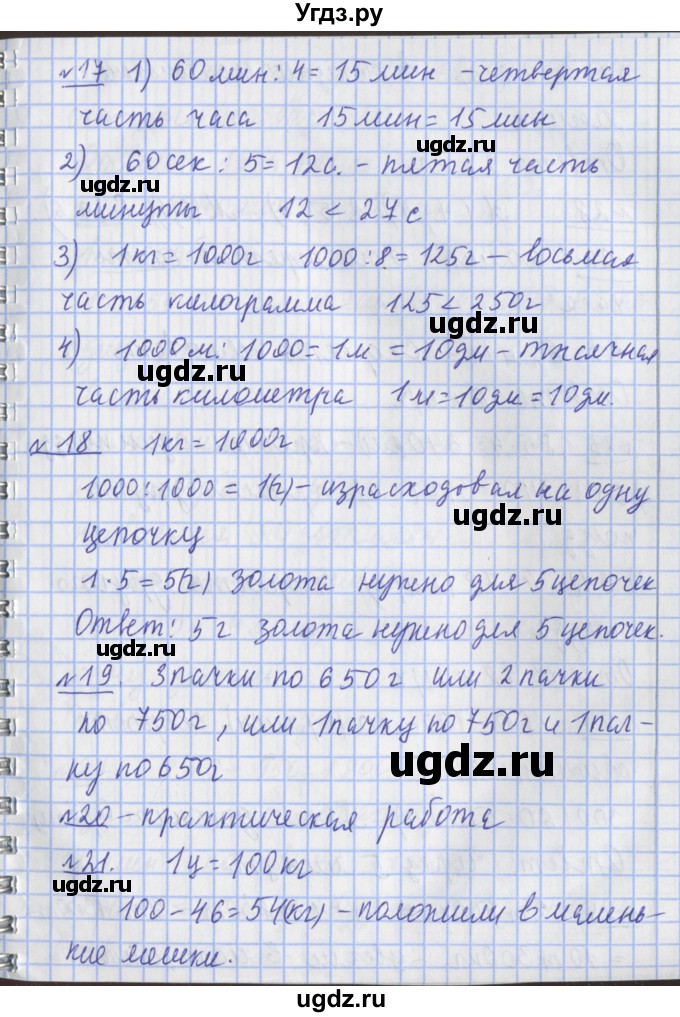 Угдз.ру
№17 1) 60 мин : 4 = 15 мин - четвертая
часть часа 15 мин = 15 мин
2) 60 сек : 5 = 12 с. - пятая часть
ugdz.ru
ugdz.ru
минуты 12 < 27 с
3) 1 кг = 1000 г 1000 : 8 = 125 г - восьмая
часть килограмма 125 < 250 г
ugdz.ru
4) 1000 м : 1000 = 1 м = 10 дм - тысячная
ugdz.ru
часть километра 1 м = 10 дм = 10 дм.
№18 1 кг = 1000 г
1000 : 1000 = 1 (г) - израсходовал на одну
ugdz.ru
цепочку
1 · 5 = 5 (г) золота нужно для 5 цепочек
Ответ: 5 г золота нужно для 5 цепочек.
ugdz.ru
№19. 3 пачки по 650 г или 2 пачки
по 750 г, или 1 пачку по 750 г и 1 пал-
ку по 650 г
ugdz.ru
№20 - практическая работа
№21. 1 ц = 100 кг
ugdz.ru
100 - 46 = 54 (кг) - положили в малень-
кие мешки.
ugdz.ru